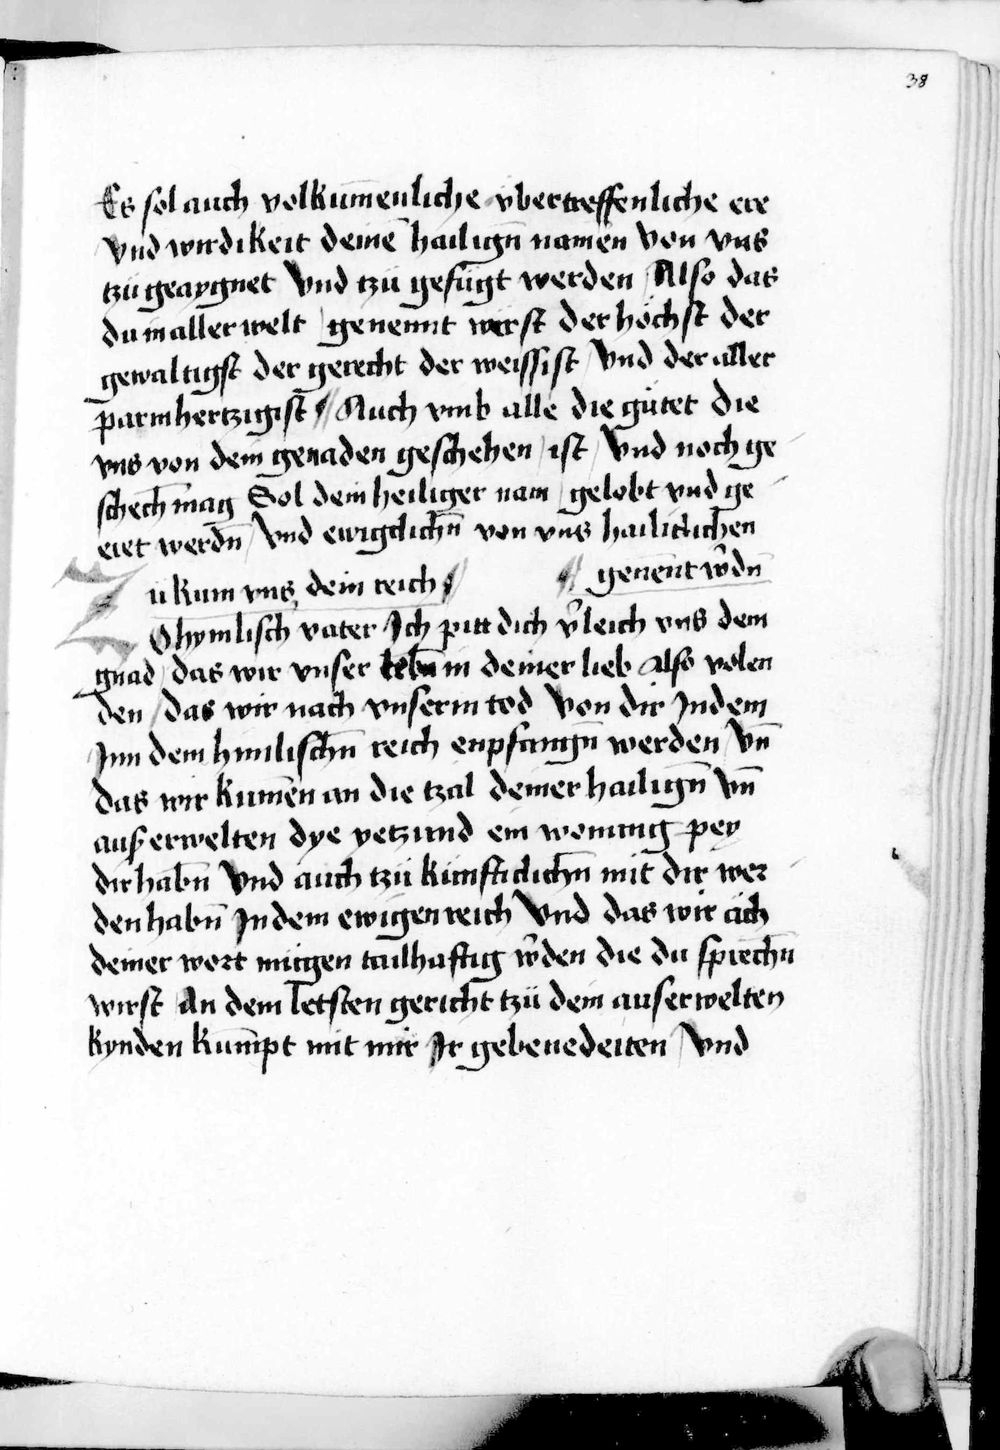 38
Es sol auch volkūmenliche vbertreffenliche ere
Vnd wirdikeit deinē hailigñ namen von vns
tzü geaygnet Vnd tzü gefügt werden / Also das
du in aller welt / genennt wirst der höchst der
gewaltigst der gerecht der weissist / Vnd der aller
parmhertzigist // Auch vmb alle die gütet die
vns von dem genaden geschehen / ist / Vnd noch ge
schech̄ mag Sol dein heiliger nam / gelobt vnd ge
eret werdñ / Vnd ewigclichñ von vns hailiclichen
genēnt w̄dñ
Zü kum vns dein reich //
O hymlisch vater Ich pitt dich v̄leich vns dein
gnad / das wir vnser lebñ in deiner lieb Also volen
den / das wir nach vnserm tod Von dir Indem
Inn dem himlischñ reich enpfangñ werden / Vñ
das wir kumēn an die tzal deiner hailigñ Vñ
auſserwelten dye yetzund ein wonung pey
dir habñ Vnd auch tzü künfticlichñ mit dir wer
den habñ In dem ewigen reich Vnd das wir äch
deiner wort mügen tailhaftig w̄den die du sprechñ
wirst An dem letsten gericht tzü dein auserwelten
kynden kum̄pt mit mir Ir gebenedeiten / Vnd